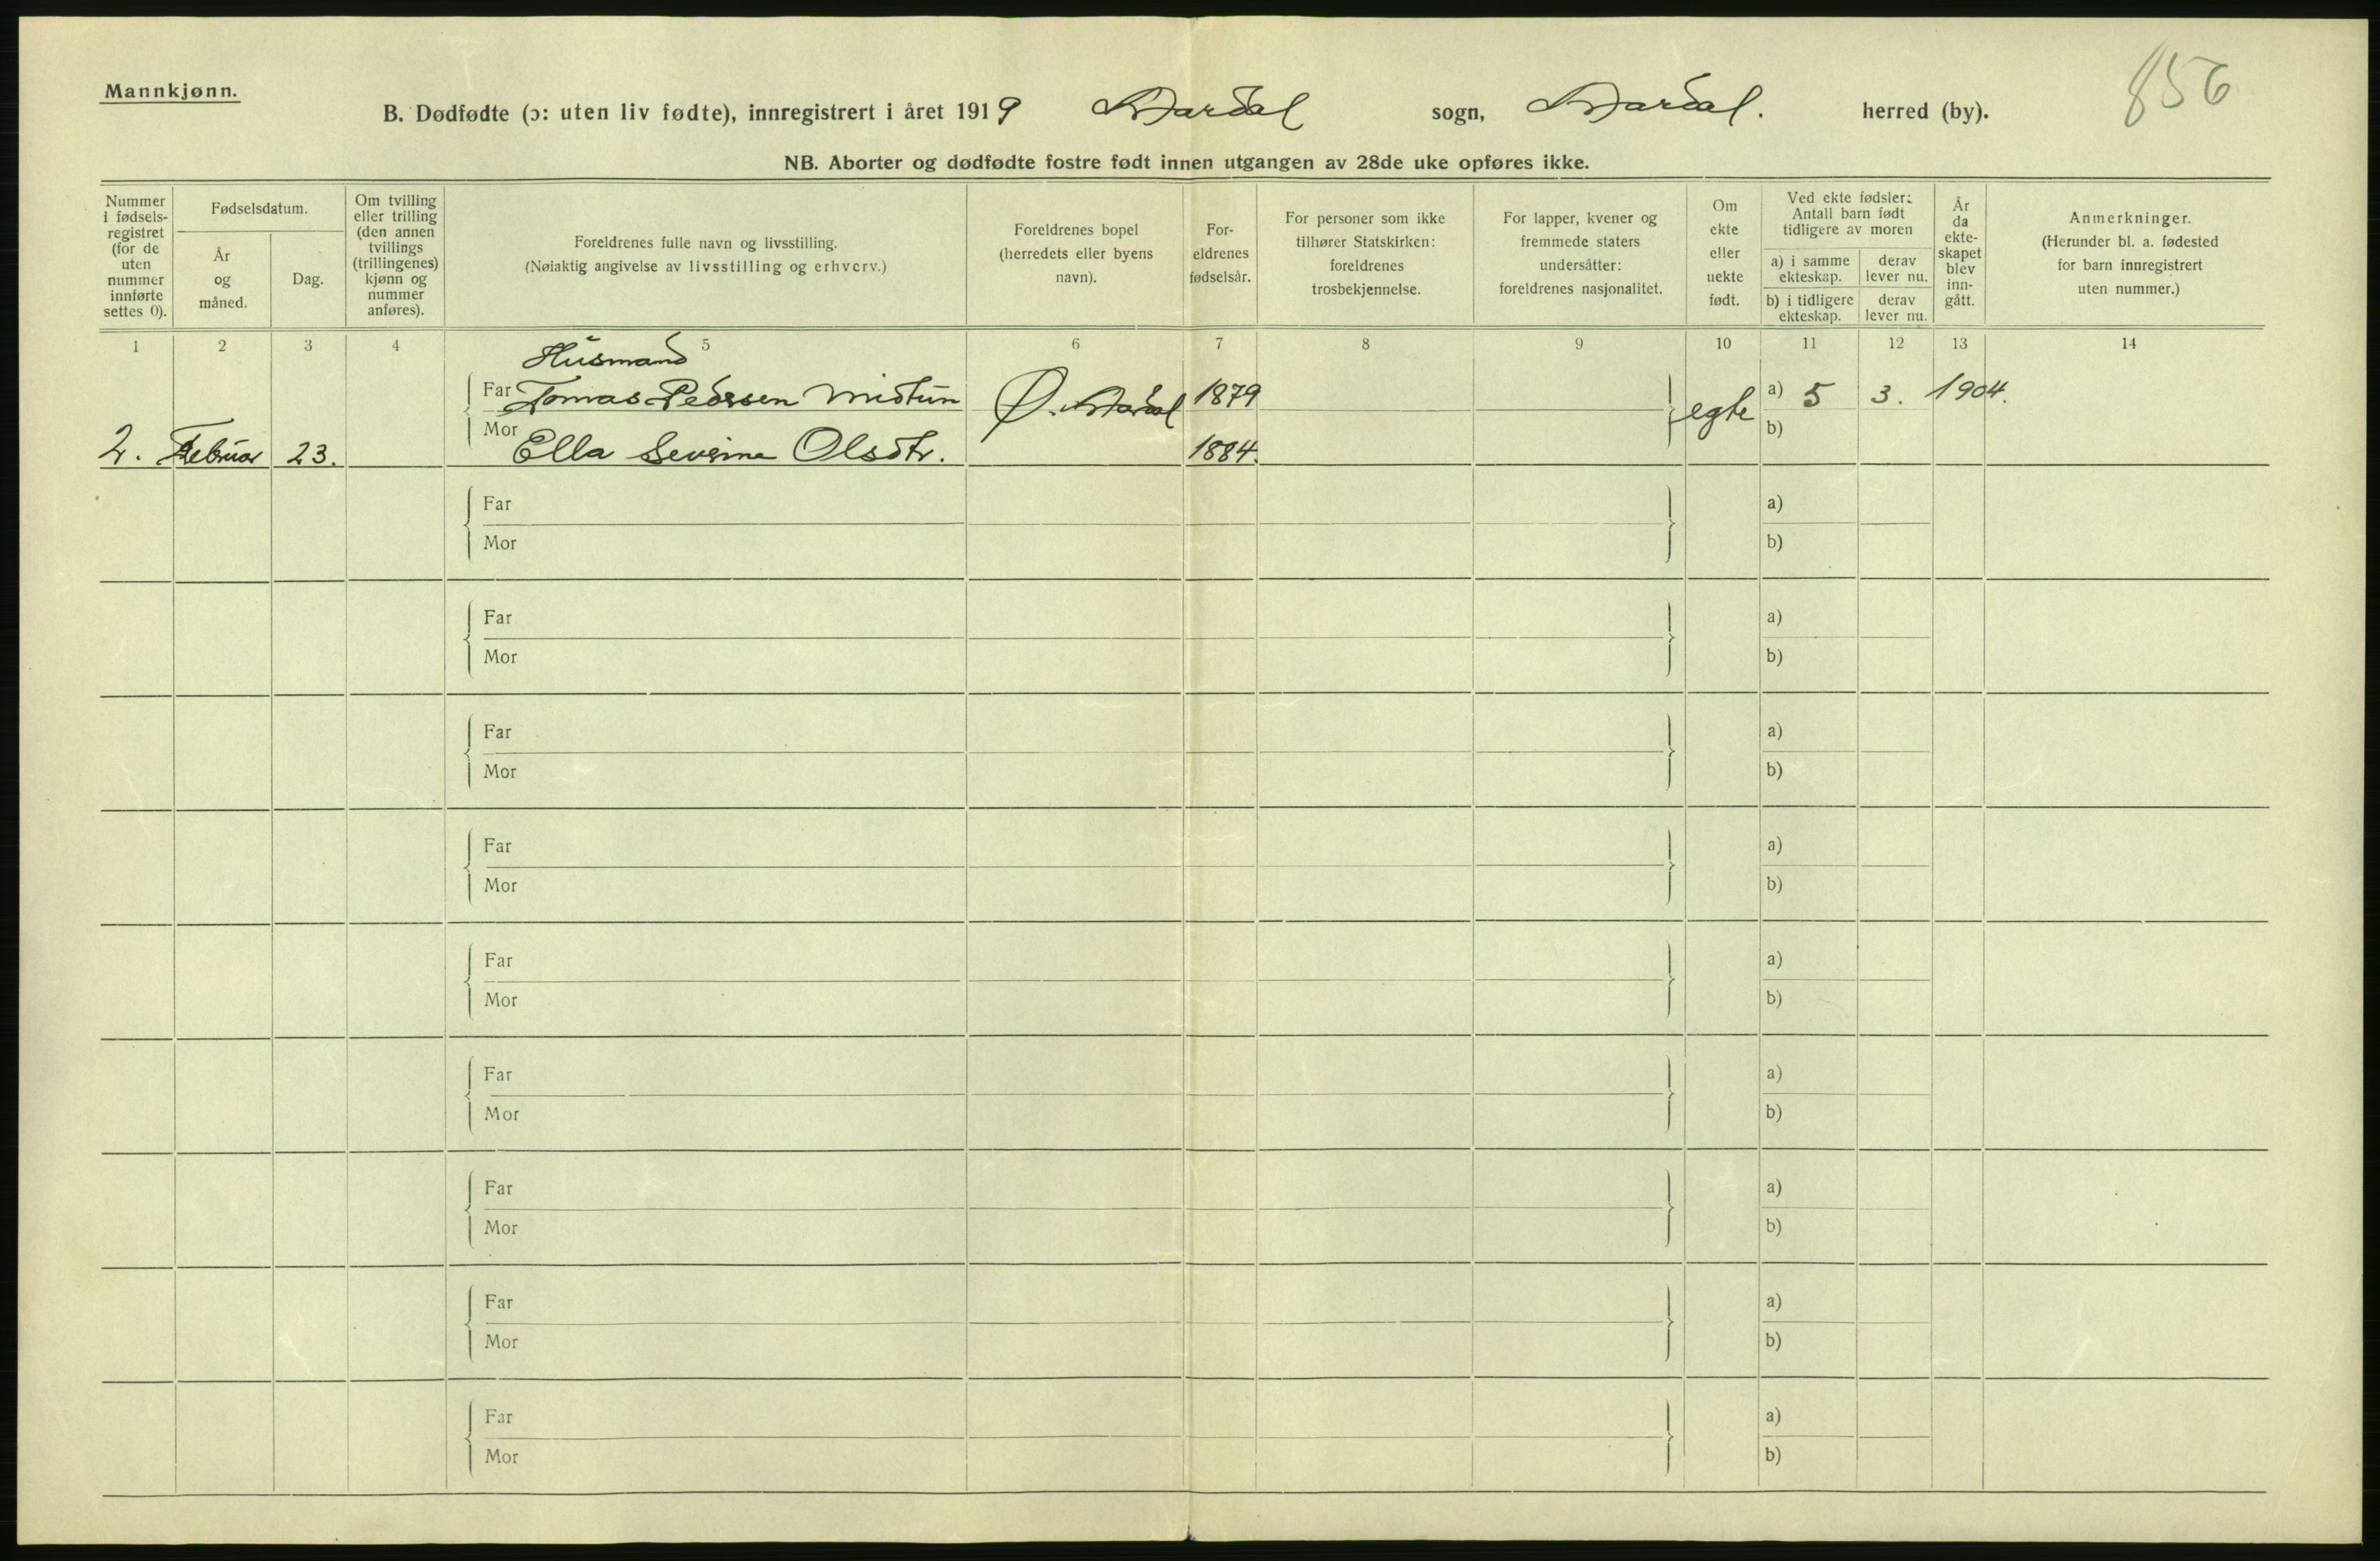 Mannkjønn.
856
B. Dødfødte (ɔ: uten liv fødte), innregistrert i året 1919 Aardal sogn, Aardal. herred (by).
NB. Aborter og dødfødte fostre født innen utgangen av 28de uke opføres ikke.
Nummer i fødsels-registret (for de uten nummer innførte settes 0).
Fødselsdatum.
År og måned.
Dag.
Om tvilling eller trilling (den annen tvillings (trillingenes) kjønn og nummer anføres).
Foreldrenes fulle navn og livsstilling.
(Nøiaktig angivelse av livsstilling og erhverv.)
Foreldrenes bopel (herredets eller byens navn).
For-eldrenes fødselsår.
For personer som ikke tilhører Statskirken: foreldrenes trosbekjennelse.
For lapper, kvener og fremmede staters undersåtter: foreldrenes nasjonalitet.
Om ekte eller uekte født.
Ved ekte fødsler: Antall barn født tidligere av moren
a) i samme ekteskap.
derav lever nu.
b) i tidligere ekteskap.
derav lever nu.
År da ekte-skapet blev inn-gått.
Anmerkninger.
(Herunder bl. a. fødested for barn innregistrert uten nummer.)
1 2 3 4 5 6 7 8 9 10 11 12 13 14
Husmand
Far Tomas Pedersen Midtun Ø. Aardal 1879 egte a) 5 3. 1904.
2. Februar 23. Mor Ella Severine Olsdtr. 1884. b)
Far a)
Mor b)
Far a)
Mor b)
Far a)
Mor b)
Far a)
Mor b)
Far a)
Mor b)
Far a)
Mor b)
Far a)
Mor b)
Far a)
Mor b)
Far a)
Mor b)